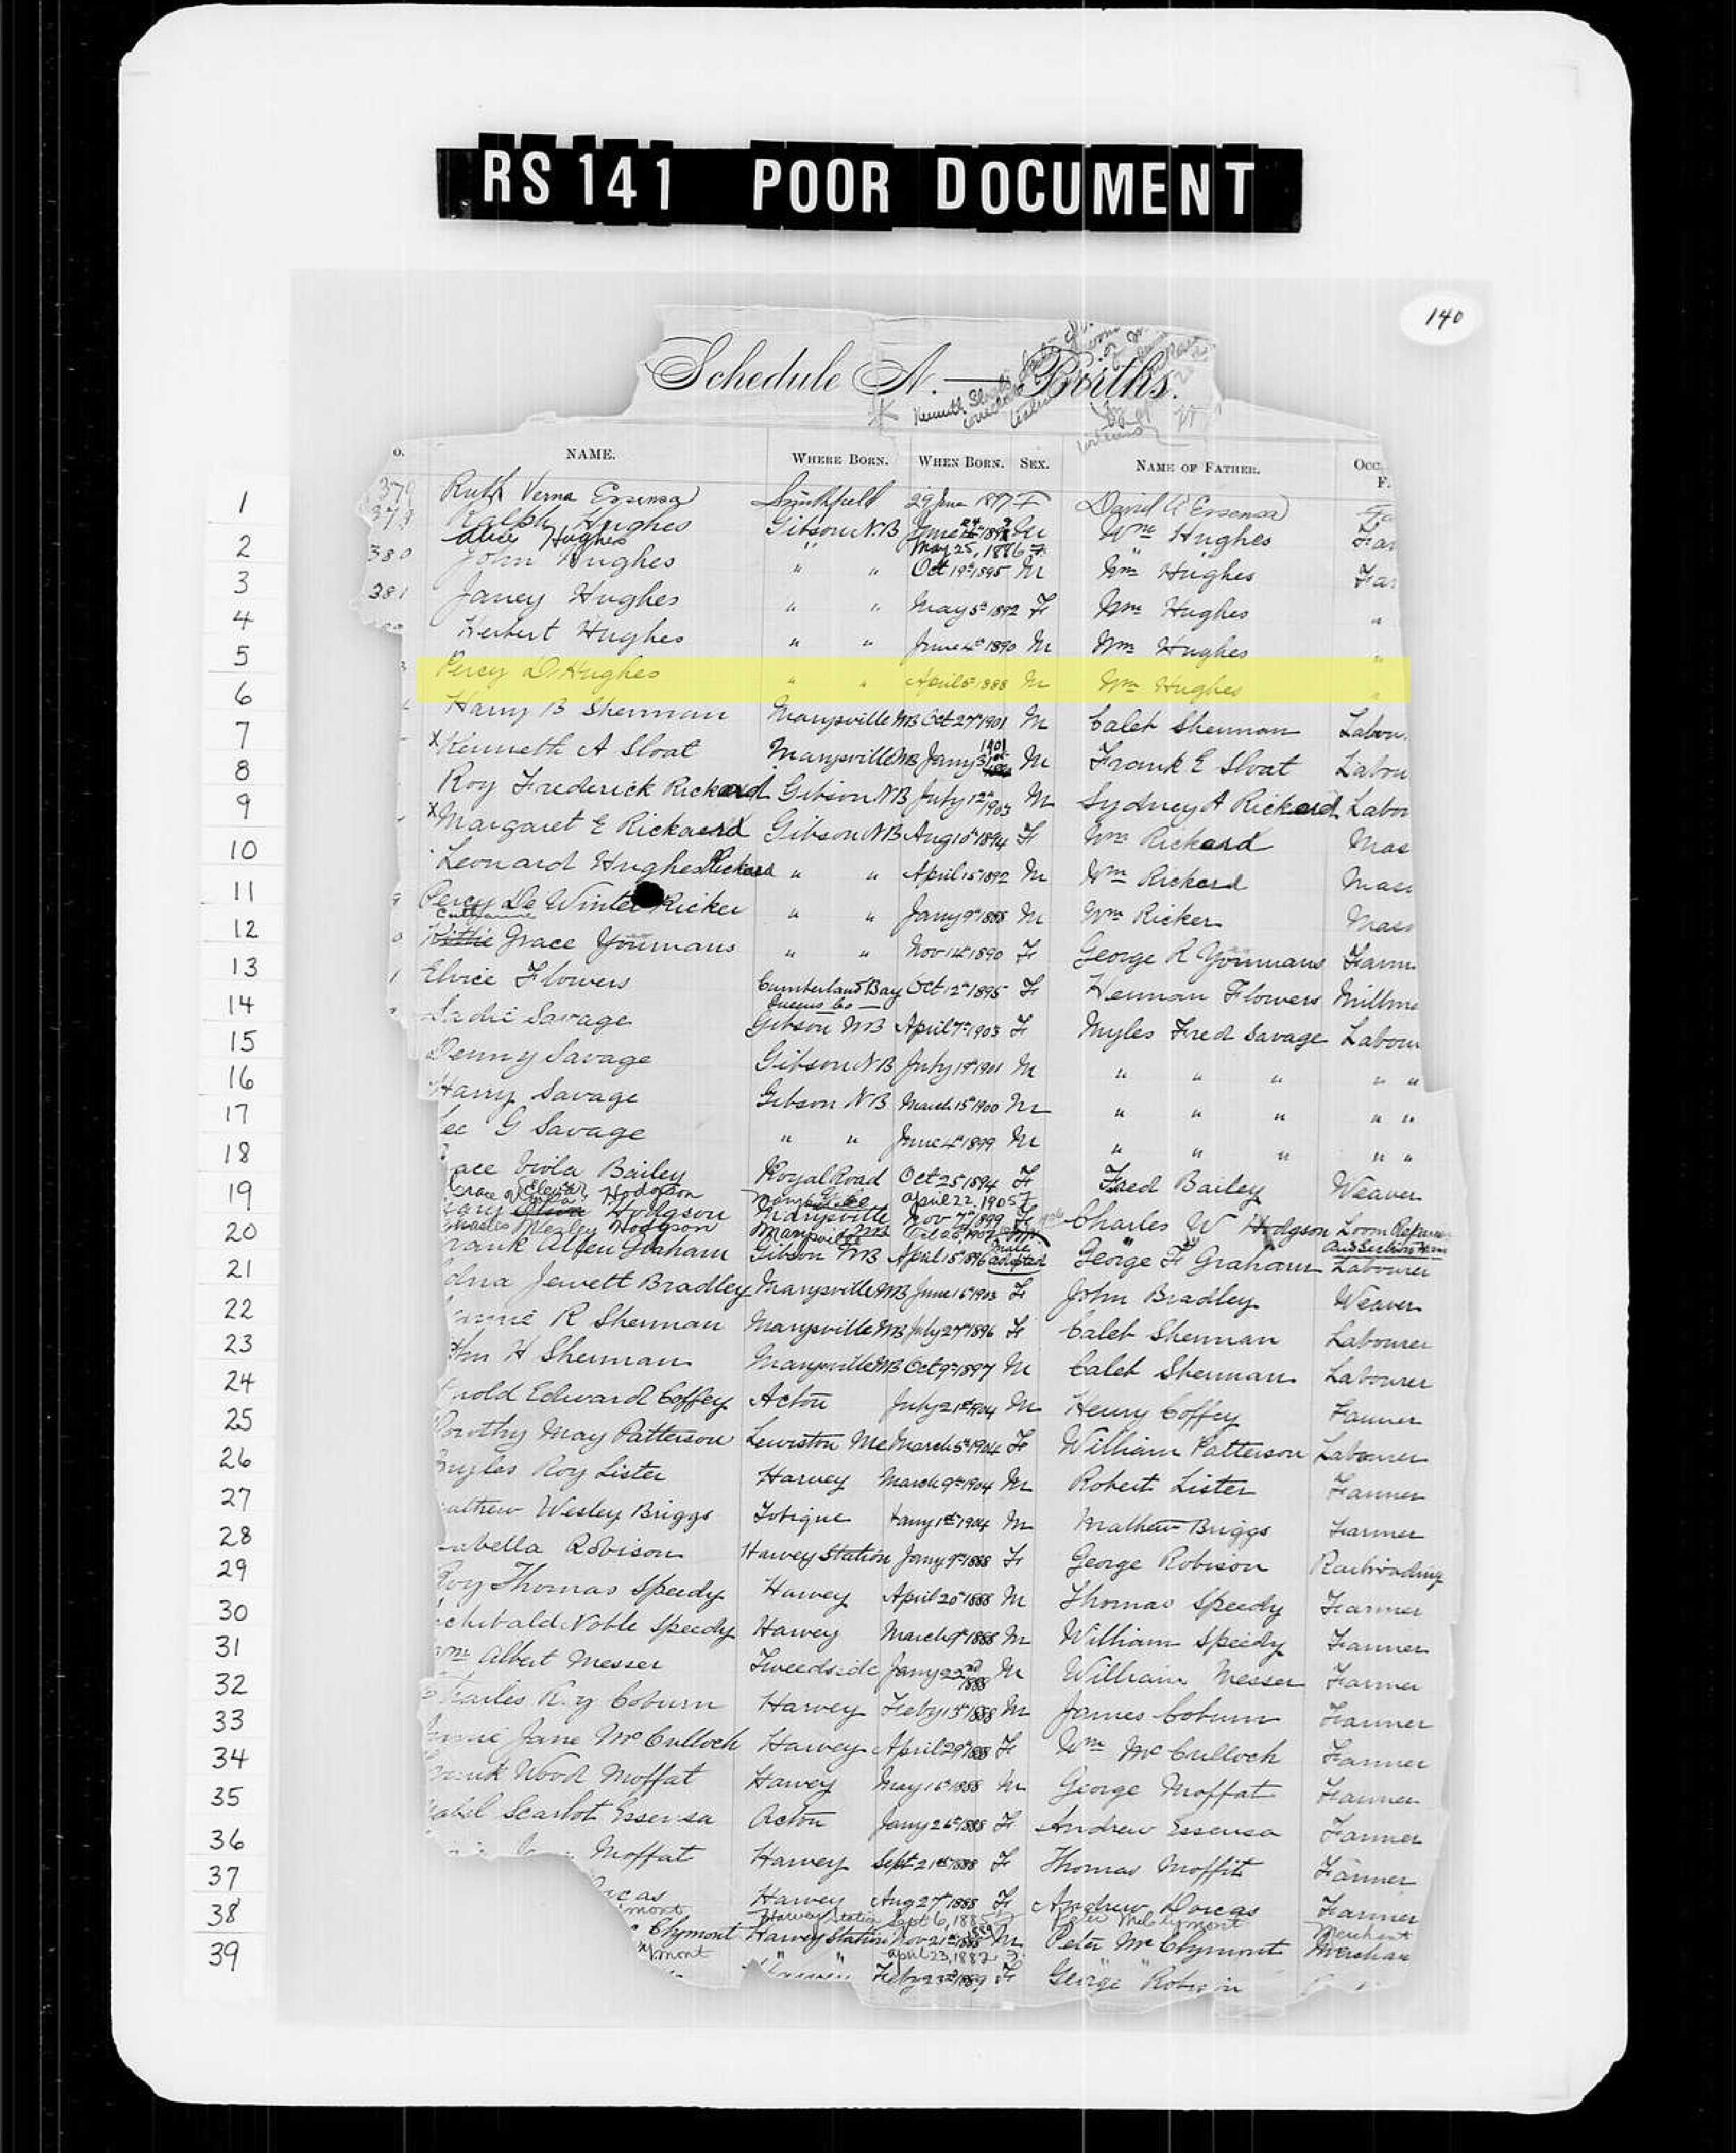 RS 141 POOR DOCUMENT
140
Schedule A. — Births.
NAME. WHERE BORN. WHEN BORN. SEX. NAME OF FATHER.
1 Ruth Verna Essensa Smithfield 29 June 1897 F David A Essensa
379 Ralph Hughes Gibson N.B June M Wm Hughes Far
2 Alice Hughes " May 25, 1886 F "
380 John Hughes " " Oct 19th 1895 M Wm Hughes Far
3 381 Janey Hughes " " May 5th 1892 F Wm Hughes "
4 Herbert Hughes " " June 4th 1890 M Wm Hughes "
5 Percy D Hughes " " April 5th 1888 M Wm Hughes "
6 Harry B Sherman Marysville NB Oct 27th 1901 M Caleb Sherman Labour
7 x Kenneth A Sloat Marysville NB Jany 31st 1901 M Frank E Sloat Labou
8 Roy Frederick Rickard Gibson NB July 12th 1903 M Sydney A Rickard Labor
9 x Margaret E Rickard Gibson NB Aug 10th 1894 F Wm Rickard Mas
10 Leonard Hughes Rickard " " April 15th 1892 M Wm Rickard Mas
11 Percy De Winter Ricker " " Jany 9th 1888 M Wm Ricker Mas
Catharine
12 Kittie Grace Youmans " " Nov 14th 1890 F George R Youmans Farm
13 Elvice Flowers Cumberland Bay Oct 12th 1895 F Herman Flowers Millma
Queens Co
14 Sadie Savage Gibson NB April 7th 1903 F Myles Fred Savage Labou
15 Denny Savage Gibson NB July 19th 1901 M " " " " "
16 Harry Savage Gibson NB March 15th 1900 M " " " " "
17 ee G Savage " " June 4th 1899 M " " " " "
18 ace Viola Bailey Royal Road Oct 25th 1894 F Fred Bailey Weaver
19 Grace Hodgson April 22, 1905 F
Mary Hodgson Marysville Nov 7th 1899 F Charles W Hodgson Loom Repairer
20 Charles Wesley Hodgson Marysville NB and Section Hand
Frank Allen Graham Gibson NB April 15th 1896 Male adopted George F Graham Labourer
21 dna Jewett Bradley Marysville NB June 16th 1903 F John Bradley Weaver
22 annie R Sherman Marysville NB July 27th 1896 F Caleb Sherman Labourer
23 Wm H Sherman Marysville NB Oct 9th 1897 M Caleb Sherman Labourer
24 rnold Edward Coffey Acton July 21st 1904 M Henry Coffey Farmer
25 Dorothy May Patterson Lewiston Me March 5th 1904 F William Patterson Labourer
26 Myles Roy Lister Harvey March 9th 1904 M Robert Lister Farmer
27 athew Wesley Briggs Tobique Jany 1st 1904 M Mathew Briggs Farmer
28 abella Robison Harvey Station Jany 9th 1888 F George Robison Railroading
29 Roy Thomas Speedy Harvey April 20th 1888 M Thomas Speedy Farmer
30 rchibald Noble Speedy Harvey March 9th 1888 M William Speedy Farmer
31 Wm Albert Messer Tweedside Jany 22nd 1888 M William Messer Farmer
32 Charles Roy Coburn Harvey Feby 13th 1888 M James Coburn Farmer
33 Annie Jane McCulloch Harvey April 29th 1888 F Wm McCulloch Farmer
34 Frank Wood Moffat Harvey May 16th 1888 M George Moffat Farmer
35 abel Scarlot Essensa Acton Jany 26th 1888 F Andrew Essensa Farmer
36 Moffat Harvey Sept 21st 1888 F Thomas Moffit Farmer
37 rcas Harvey Aug 27th 1888 F Andrew Dorcas Farmer
38 mont Harvey Station Sept 6, 1885 Peter McClymont Merchant
Clymont Harvey Station Nov 21st M Peter McClymont Merchan
39 ymont " " April 23, 1882 F "
Feby 23rd 1889 F George Robison